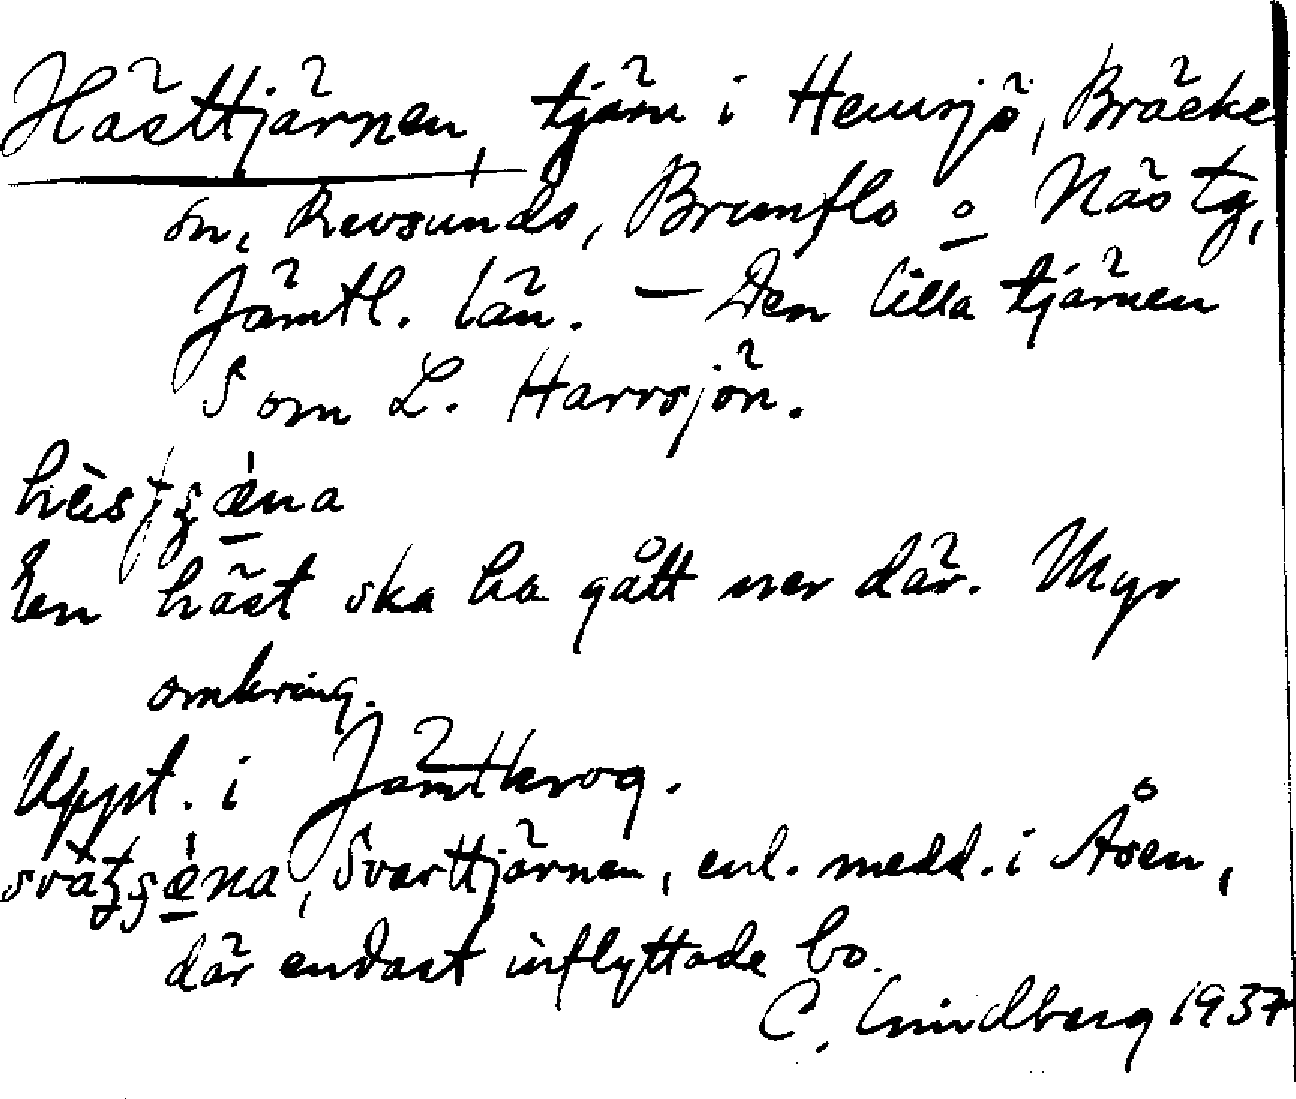 Hästtjärnen, tjärn i Hemsjö, Bräcke
sn, Revsunds, Brunflo o Näs tg,
Jämtl. län. — Den lilla tjärnen
S om L. Harrsjön.
En häst ska ha gått ner där. Myr
omkring.
Uppt. i Jämtkrog.
Svarttjärnen, enl. medd. i Åsen,
där endast inflyttade bo.
C. Lindberg 1937